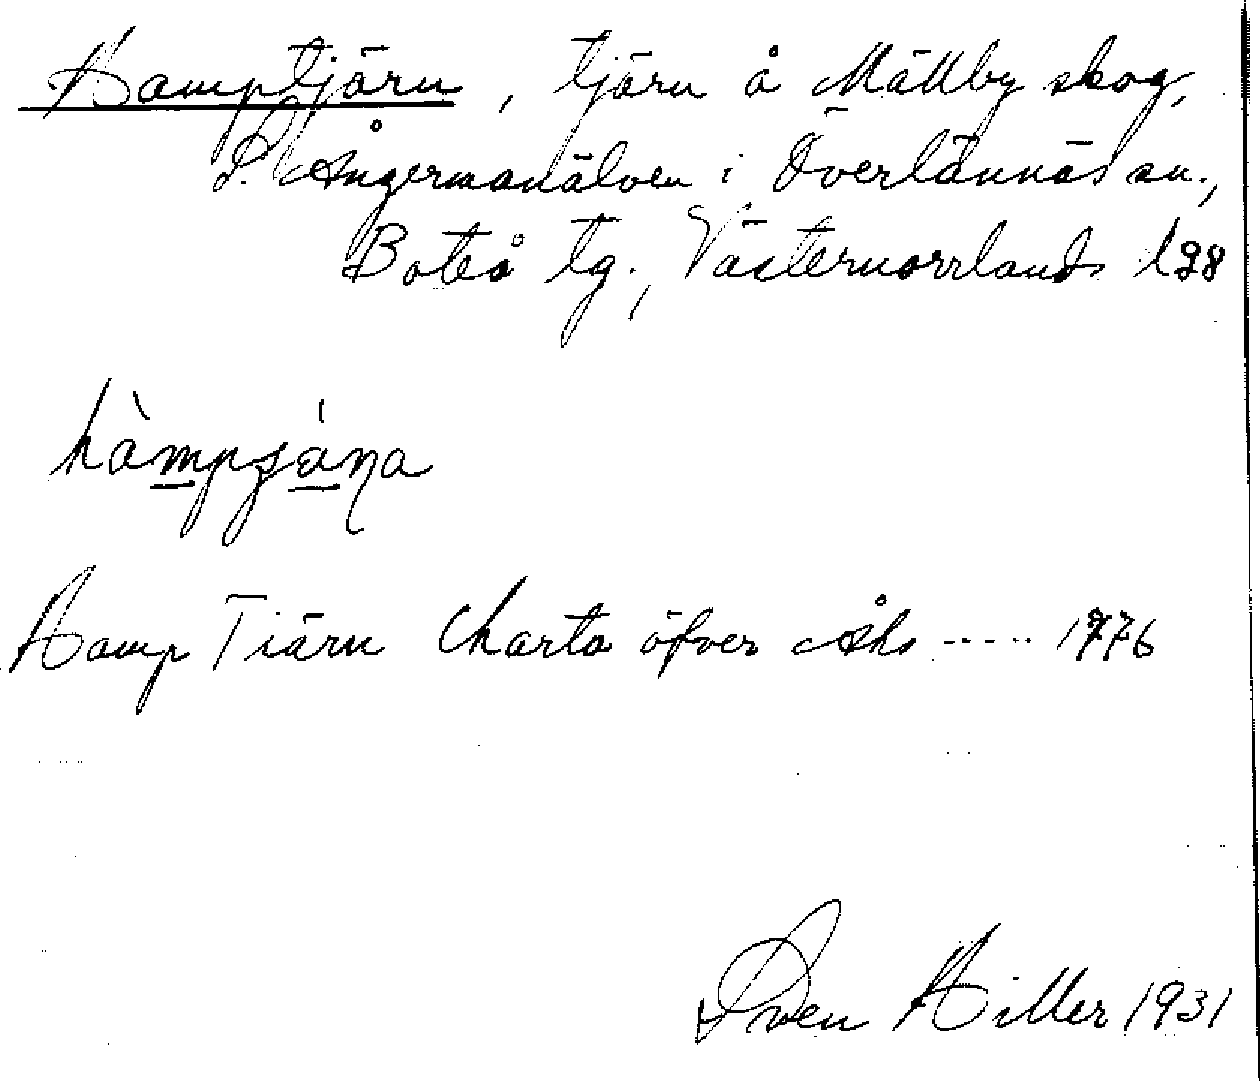 Hamptjärn, tjärn å Mällby skog,
S. Ångermanälven i Överlännäs sn.,
Boteå tg., Västernorrlands l
hàmpʃána
Hamp Tiärn Charta öfver Åhs ..... 1776
Sven Hiller 1931